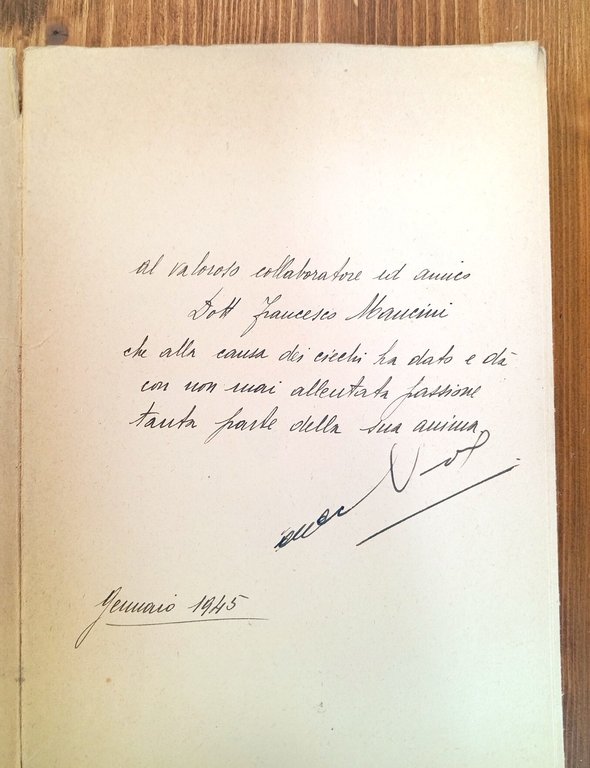 al valoroso collaboratore ed amico
Dott Francesco Mancini
che alla causa dei ciechi ha dato e dà
con non mai allentata passione
tanta parte della sua anima
Gennaio 1945